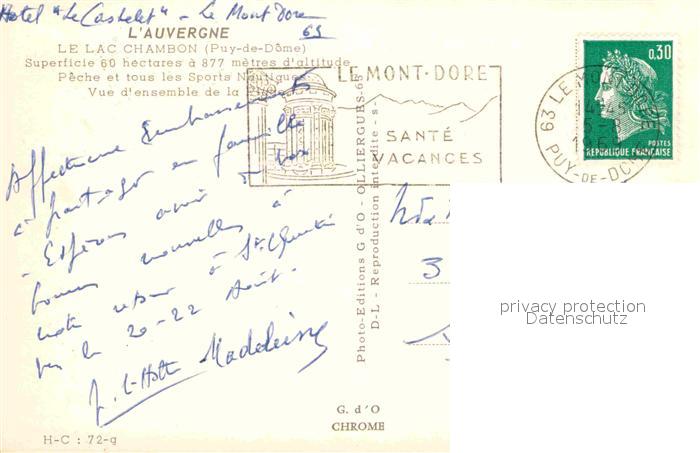 Hotel "Le Castelet" - Le Mont Dore
63
L'AUVERGNE
LE LAC CHAMBON (Puy-de-Dôme)
Superficie 60 hectares à 877 mètres d'altitude
Pêche et tous les Sports Nautiques
Vue d'ensemble de la
Affectueux Embrassements
à partager en famille
Espérons avoir de vos
bonnes nouvelles à
notre retour à St Quentin
vers le 20-22 Août.
Madeleine
H-C : 72-g
Photo-Editions G d'O - OLLIERGUES-63
D-L - Reproduction interdite -s-
G. d'O
CHROME
LE MONT-DORE
SANTÉ
VACANCES
63 LE MONT-DORE
PUY-DE-DOME
0,30
POSTES
REPUBLIQUE FRANÇAISE
3
privacy protection
Datenschutz